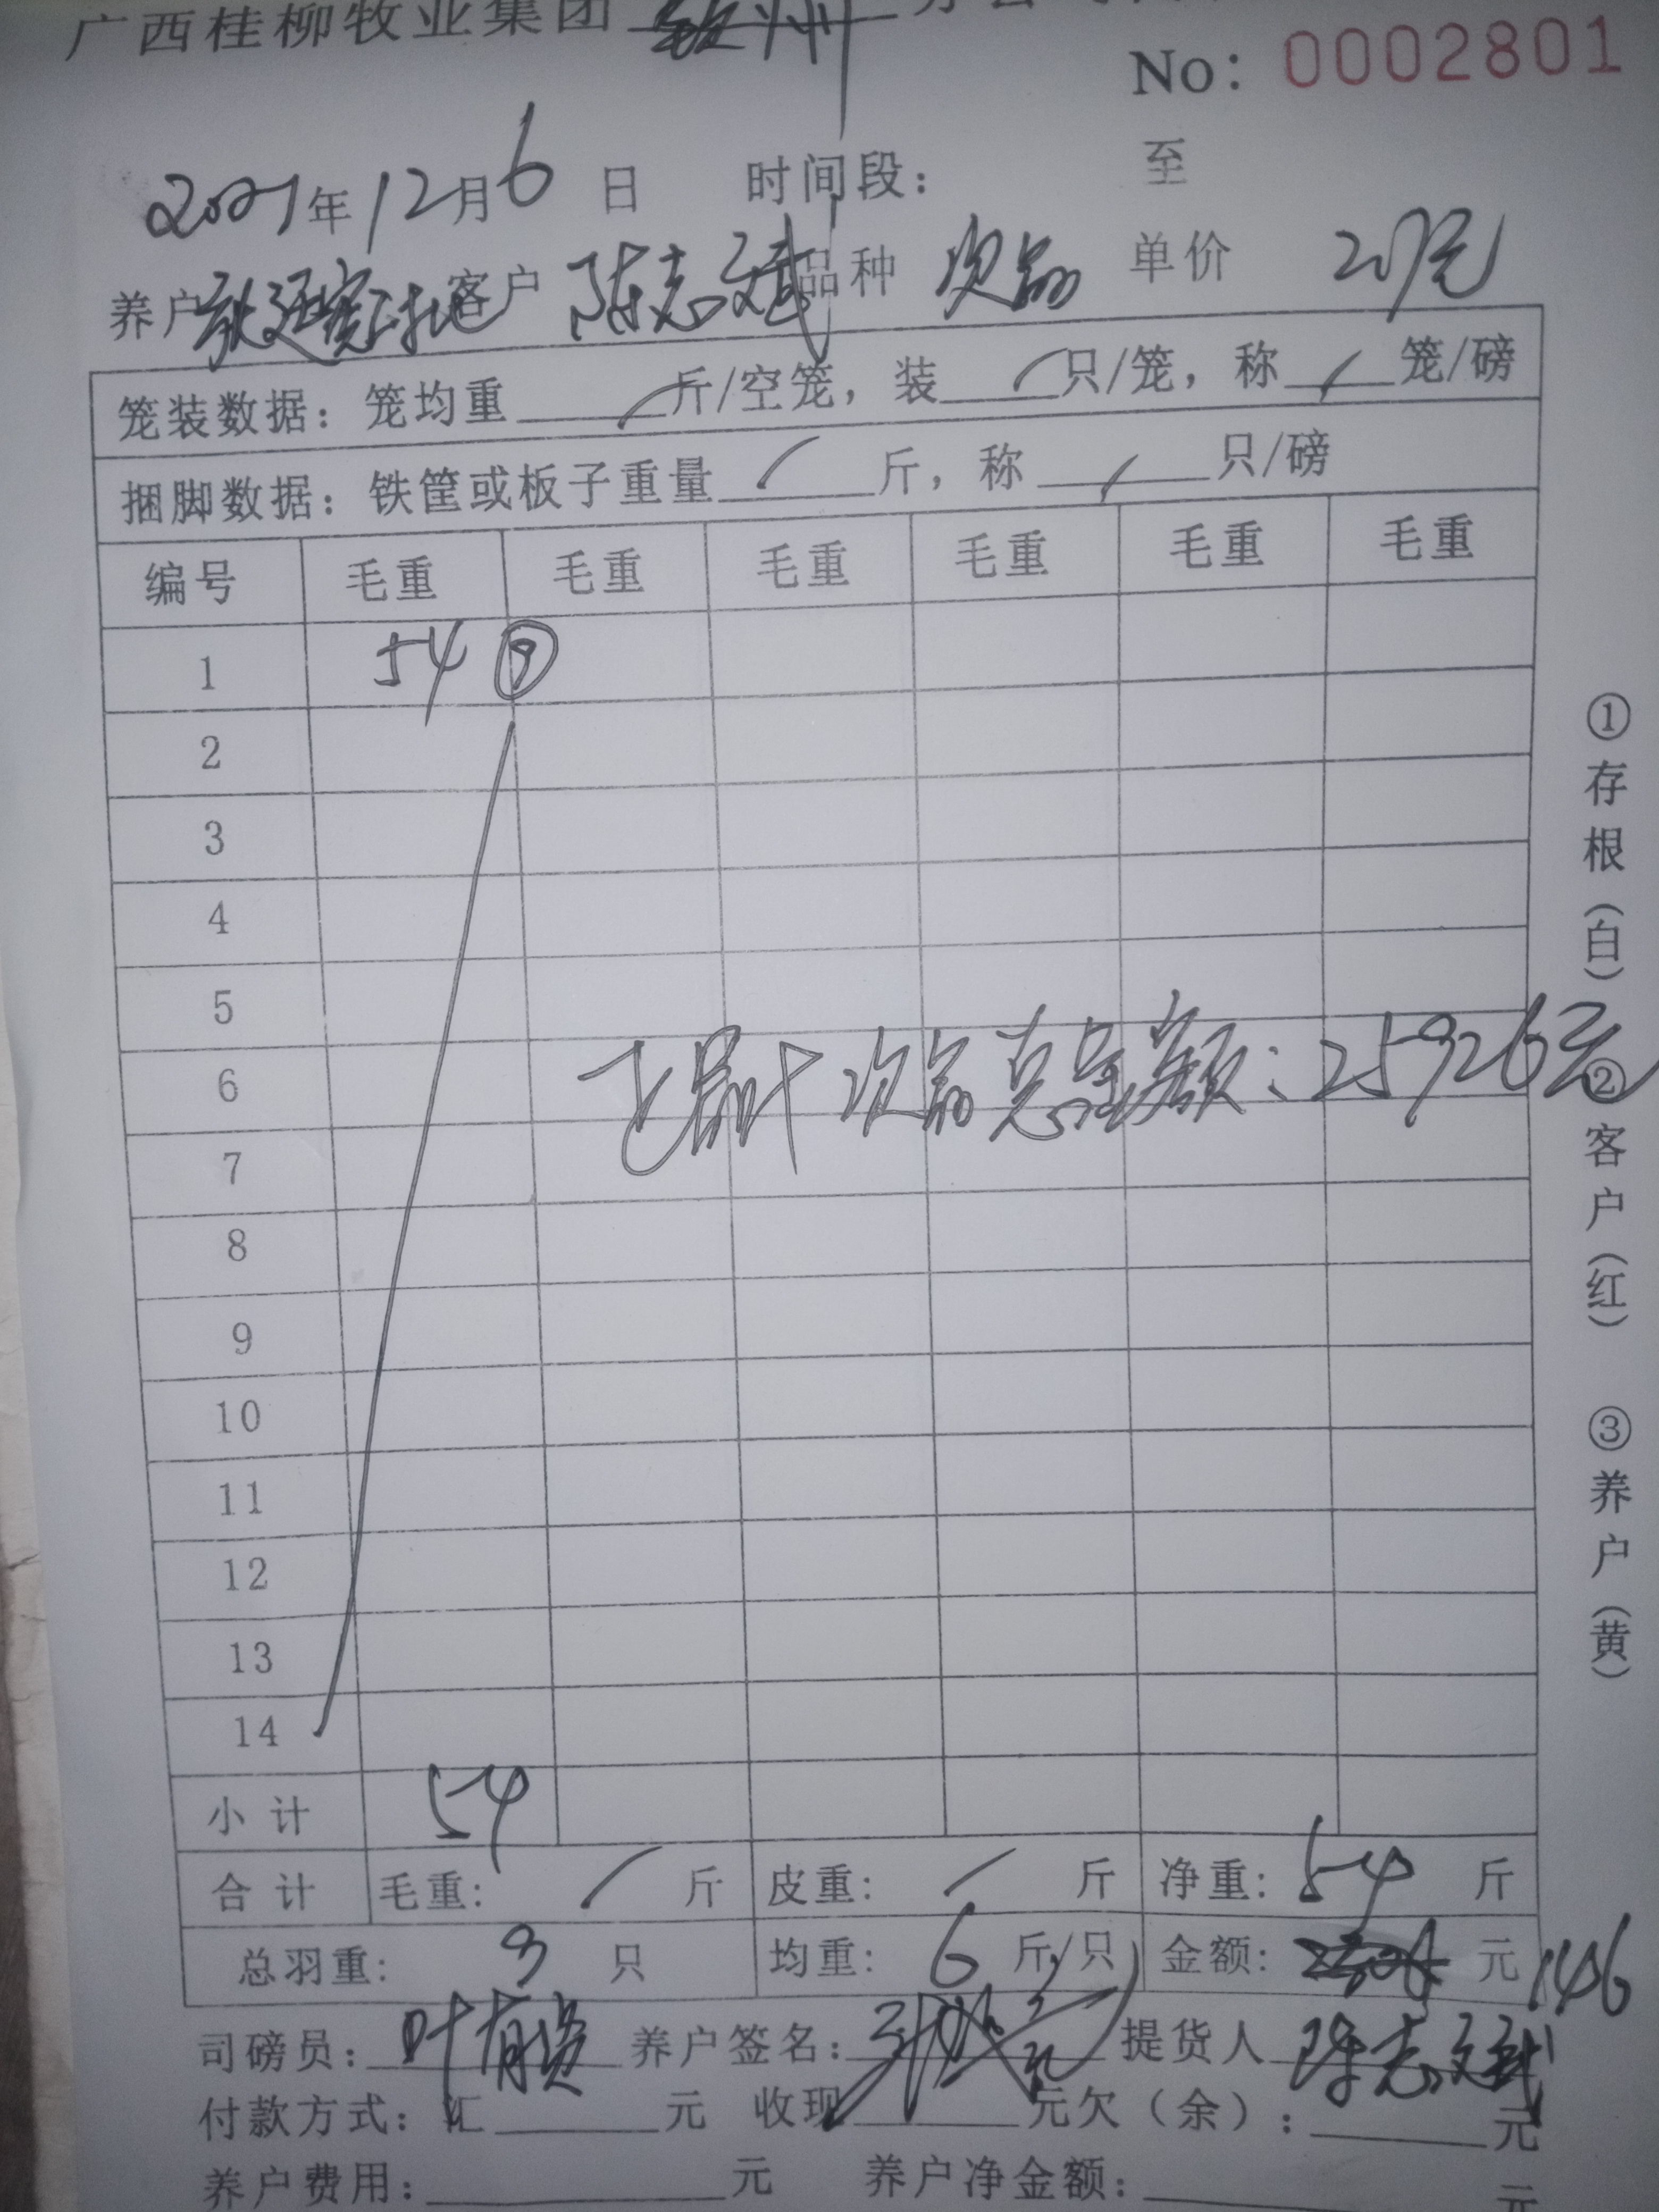 广西桂柳牧业集团 钦州
No: 0002801
2021年12月6日 时间段: 至
养户 客户 陈志斌 品种 次品 单价 2.7元
笼装数据: 笼均重 / 斤/空笼, 装 / 只/笼, 称 / 笼/磅
捆脚数据: 铁筐或板子重量 / 斤, 称 / 只/磅
编号 毛重 毛重 毛重 毛重 毛重 毛重
1 54 ⑨
2
3
4
5
6 正品+次品总金额: 25926元
7
8
9
10
11
12
13
14
小计 54
合计 毛重: / 斤 皮重: / 斤 净重: 54 斤
总羽重: 9 只 均重: 6 斤/只 金额: 元 146
司磅员: 叶有贤 养户签名: 提货人 陈志斌
付款方式: 汇 元 收现 元欠(余): 元
养户费用: 元 养户净金额: 元
①存根(白) ②客户(红) ③养户(黄)